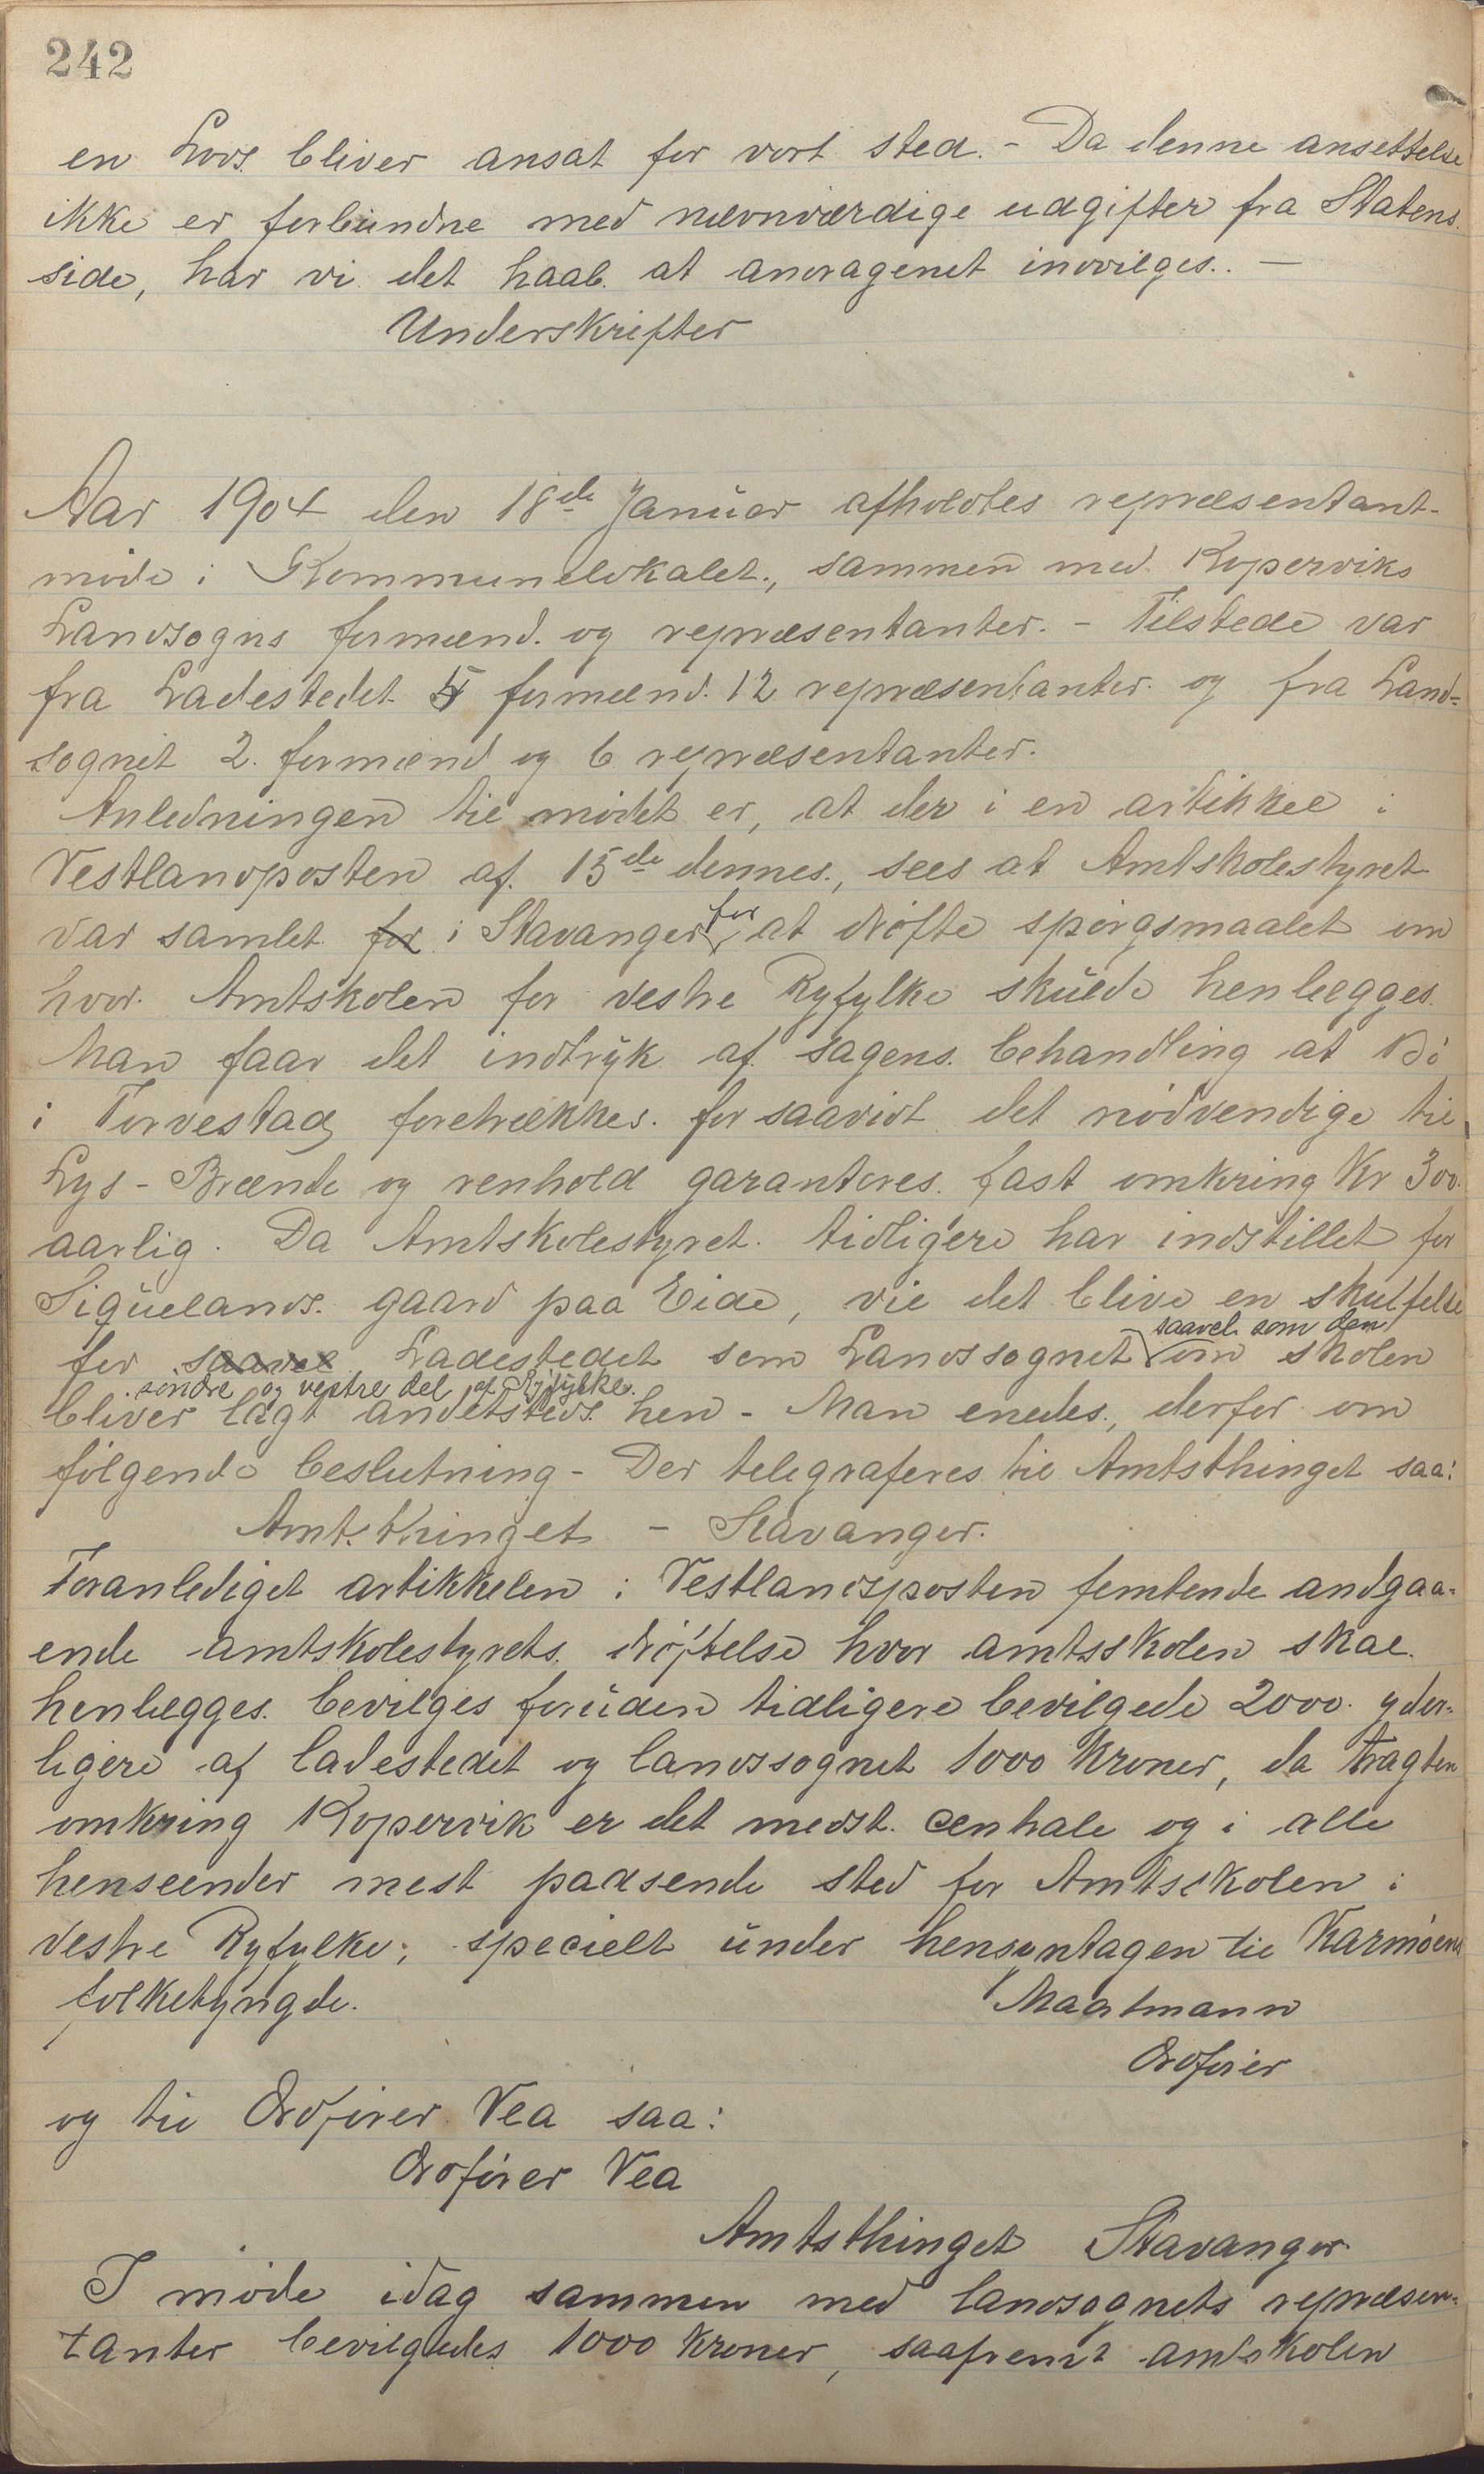 242
en Lods bliver ansat for vort sted. - Da denne ansettelse
ikke er forbundne med nævnværdige udgifter fra Statens
side, har vi det haab at andragenet indvilges. . —
Underskrifter
Aar 1904 den 18de Januar afholdtes repræsentant-
møde i Kommunelokalet., sammen med Kopperviks
Landsogns formænd. og repræsentanter. - Tilstede var
fra Ladestedet 4 formænd. 12 repræsentanter. og fra Land=
sognet 2. formænd og 6 repræsentanter.
Anledningen til mødet er, at der i en artikkel i
Vestlandposten af. 15de dennes., sees at Amtskolestyret
var samlet for i Stavanger for at drøfte spørgsmaalet om
hvor. Amtskolen for vestre Ryfylke skulde henlægges.
Man faar det indtryk af. sagens. behandling at Bø
i Torvestad foretrækkes. forsaavidt det nødvendige til
Lys - Brænde og renhold garanteres. fast omkring Kr 300.
aarlig. Da Amtskolestyret. tidligere har indstillet for
Siquelands. gaard paa Eide, vil det blive en skuffelse
saavel som den
for saavel Ladestedet som Landssognet om skolen
søndre og vestre del af Ryfylke.
bliver lagt andetsteds hen - Man enedes., derfor om
følgende beslutning - Der telegraferes til Amtsthinget saa:
Amtsthinget - Stavanger.
Foranlediget artikkelen i Vestlandsposten femtende andgaa=
ende amtskolestyrets. drøftelse hvor amtsskolen skal.
henlægges. bevilges foruden tidligere bevilgede 2000. yder=
ligere af ladestedet og landssognet 1000 Kroner, da tragten
omkring Kopervik er det medst. centrale og i alle
henseender mest passende sted for Amtsskolen i
vestre Ryfylke; specielt under hensyntagen til Karmøens
folketyngde.
Maatmann
Ordfører
og til Ordfører Vea saa:
Ordfører Vea
Amtsthinget Stavanger
I møde idag sammen med landsognets repræsen=
tanter bevilgedes 1000 Kroner, saafremt amtskolen